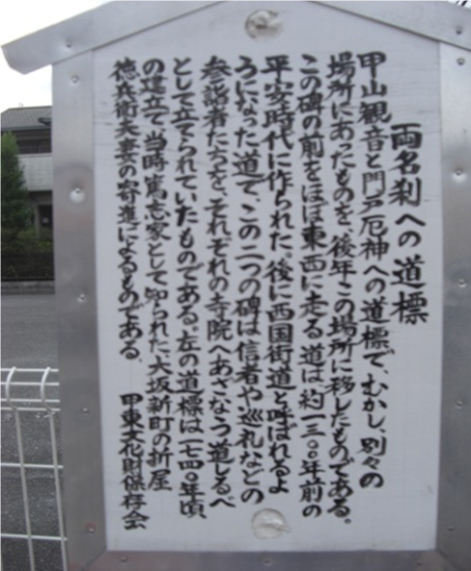 両名刹への道標
甲山観音と門戸厄神への道標で、むかし、別々の
場所にあったものを、後年この場所に移したものである。
この碑の前をほぼ東西に走る道は、約一三〇〇年前の
平安時代に作られた。後に西国街道と呼ばれるよ
うになった道で、この二つの碑は信者や巡礼などの
参詣者たちを、それぞれの寺院へあざなう道しるべ
として立てられていたものである。左の道標は一七四〇年頃
の建立で、当時篤志家として知られた、大坂新町の折屋
徳兵衛夫妻の寄進によるものである。
甲東文化財保存会